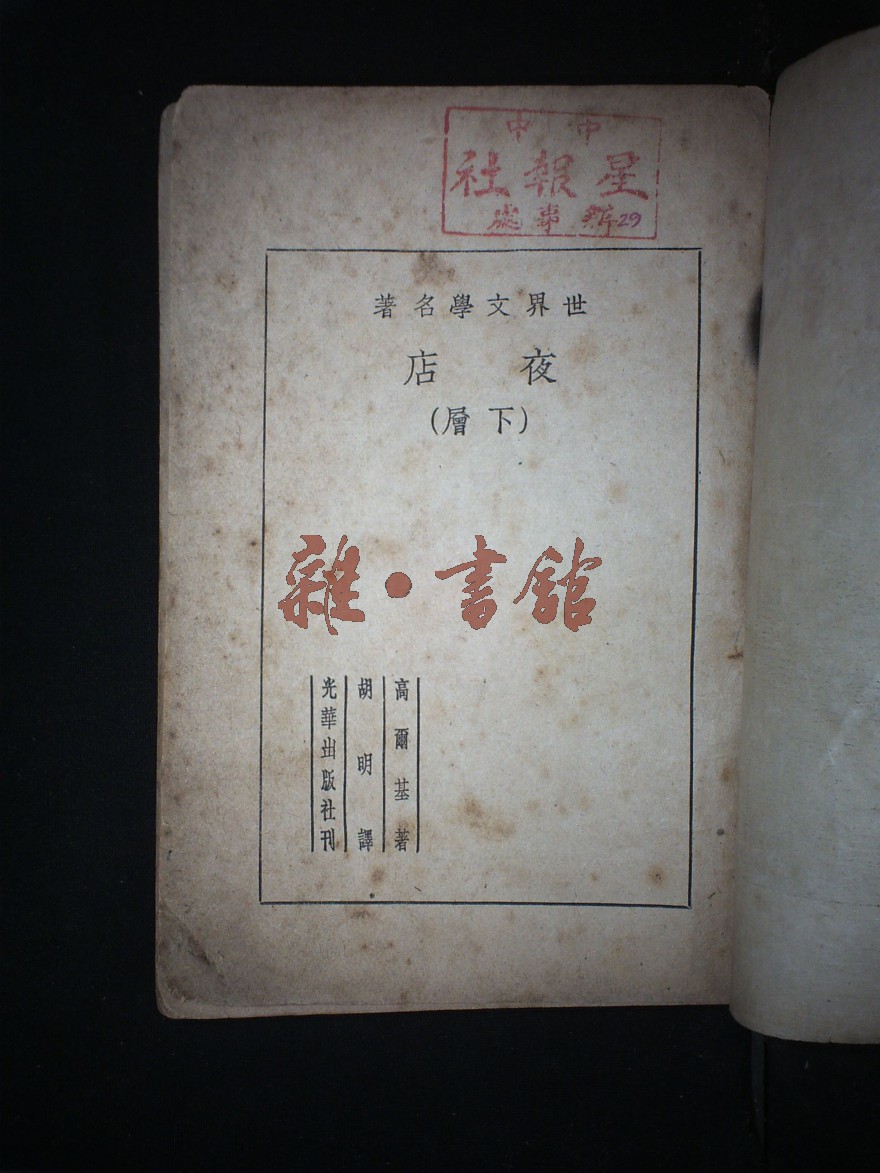 中中
星報社
辦事處
29
世界文學名著
夜店
(下層)
雜·書館
高爾基著
胡明譯
光華出版社刊